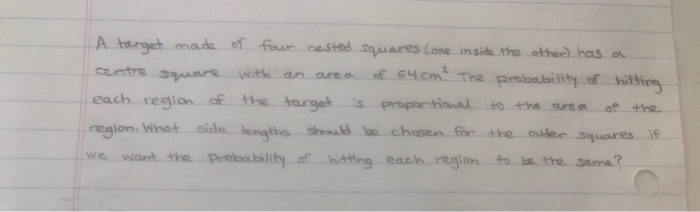 A target made of four nested squares (one inside the other) has a
centre square with an area of 64cm². The probability of hitting
each region of the target is proportional to the area of the
region. What side lengths should be chosen for the outer squares if
we want the probability of hitting each region to be the same?